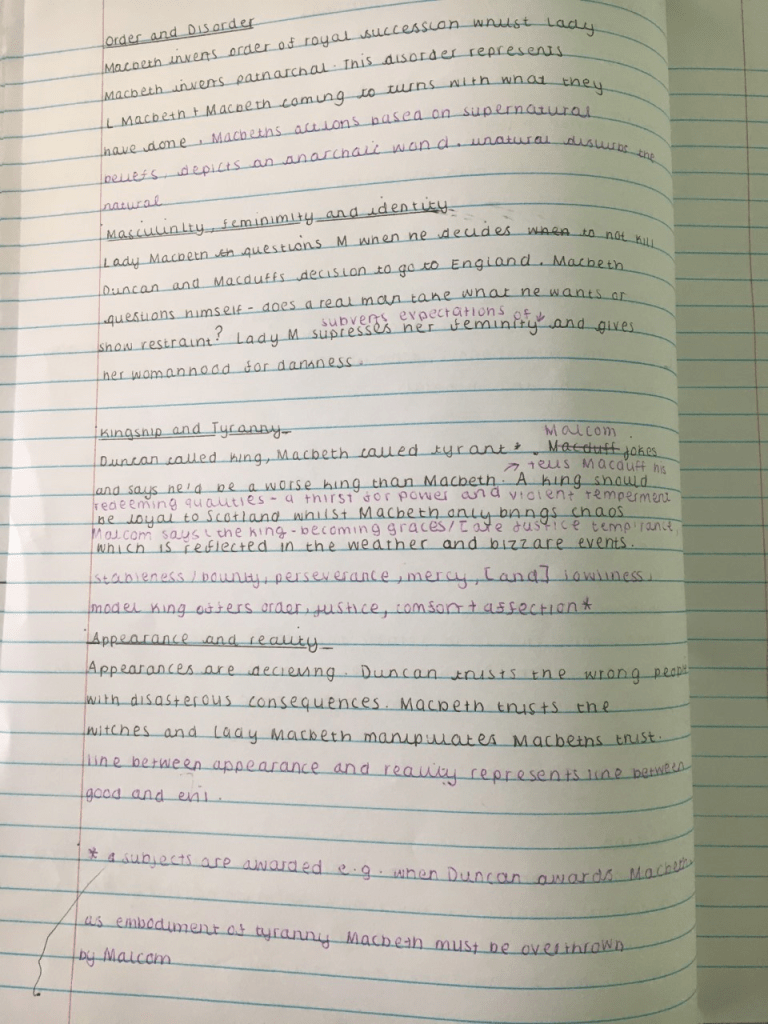 Order and Disorder
Macbeth inverts order of royal succession whilst Lady
Macbeth inverts patriarchal. This disorder represents
L Macbeth + Macbeth coming to turns with what they
have done. Macbeths actions based on supernatural
beliefs, depicts an anarchaic world. unatural disturbs the
natural
Masculinity, feminimity and identity
Lady Macbeth questions M when he decides when to not kill
Duncan and Macduffs decision to go to England. Macbeth
questions himself - does a real man take what he wants or
subverts expectations of
show restraint? Lady M supresses her feminity and gives
her womanhood for darkness.
Kingship and Tyranny
Malcom
Duncan called king, Macbeth called tyrant *. Macduff jokes
tells Macduff his
and says he'd be a worse king than Macbeth. A king should
redeeming qualities - a thirst for power and violent temperment
be loyal to Scotland whilst Macbeth only brings chaos
Malcom says the king-becoming graces / [are justice temp'rance,
which is reflected in the weather and bizzare events.
stableness / bounty, perseverance, mercy, [and] lowliness.
model king offers order, justice, comfort + affection *
Appearance and reality
Appearances are decieving. Duncan trusts the wrong people
with disasterous consequences. Macbeth trusts the
witches and Lady Macbeth manipulates Macbeths trust.
line between appearance and reality represents line between
good and evil.
* subjects are awarded e.g. when Duncan awards Macbeth
as embodiment of tyranny Macbeth must be overthrown
by Malcom